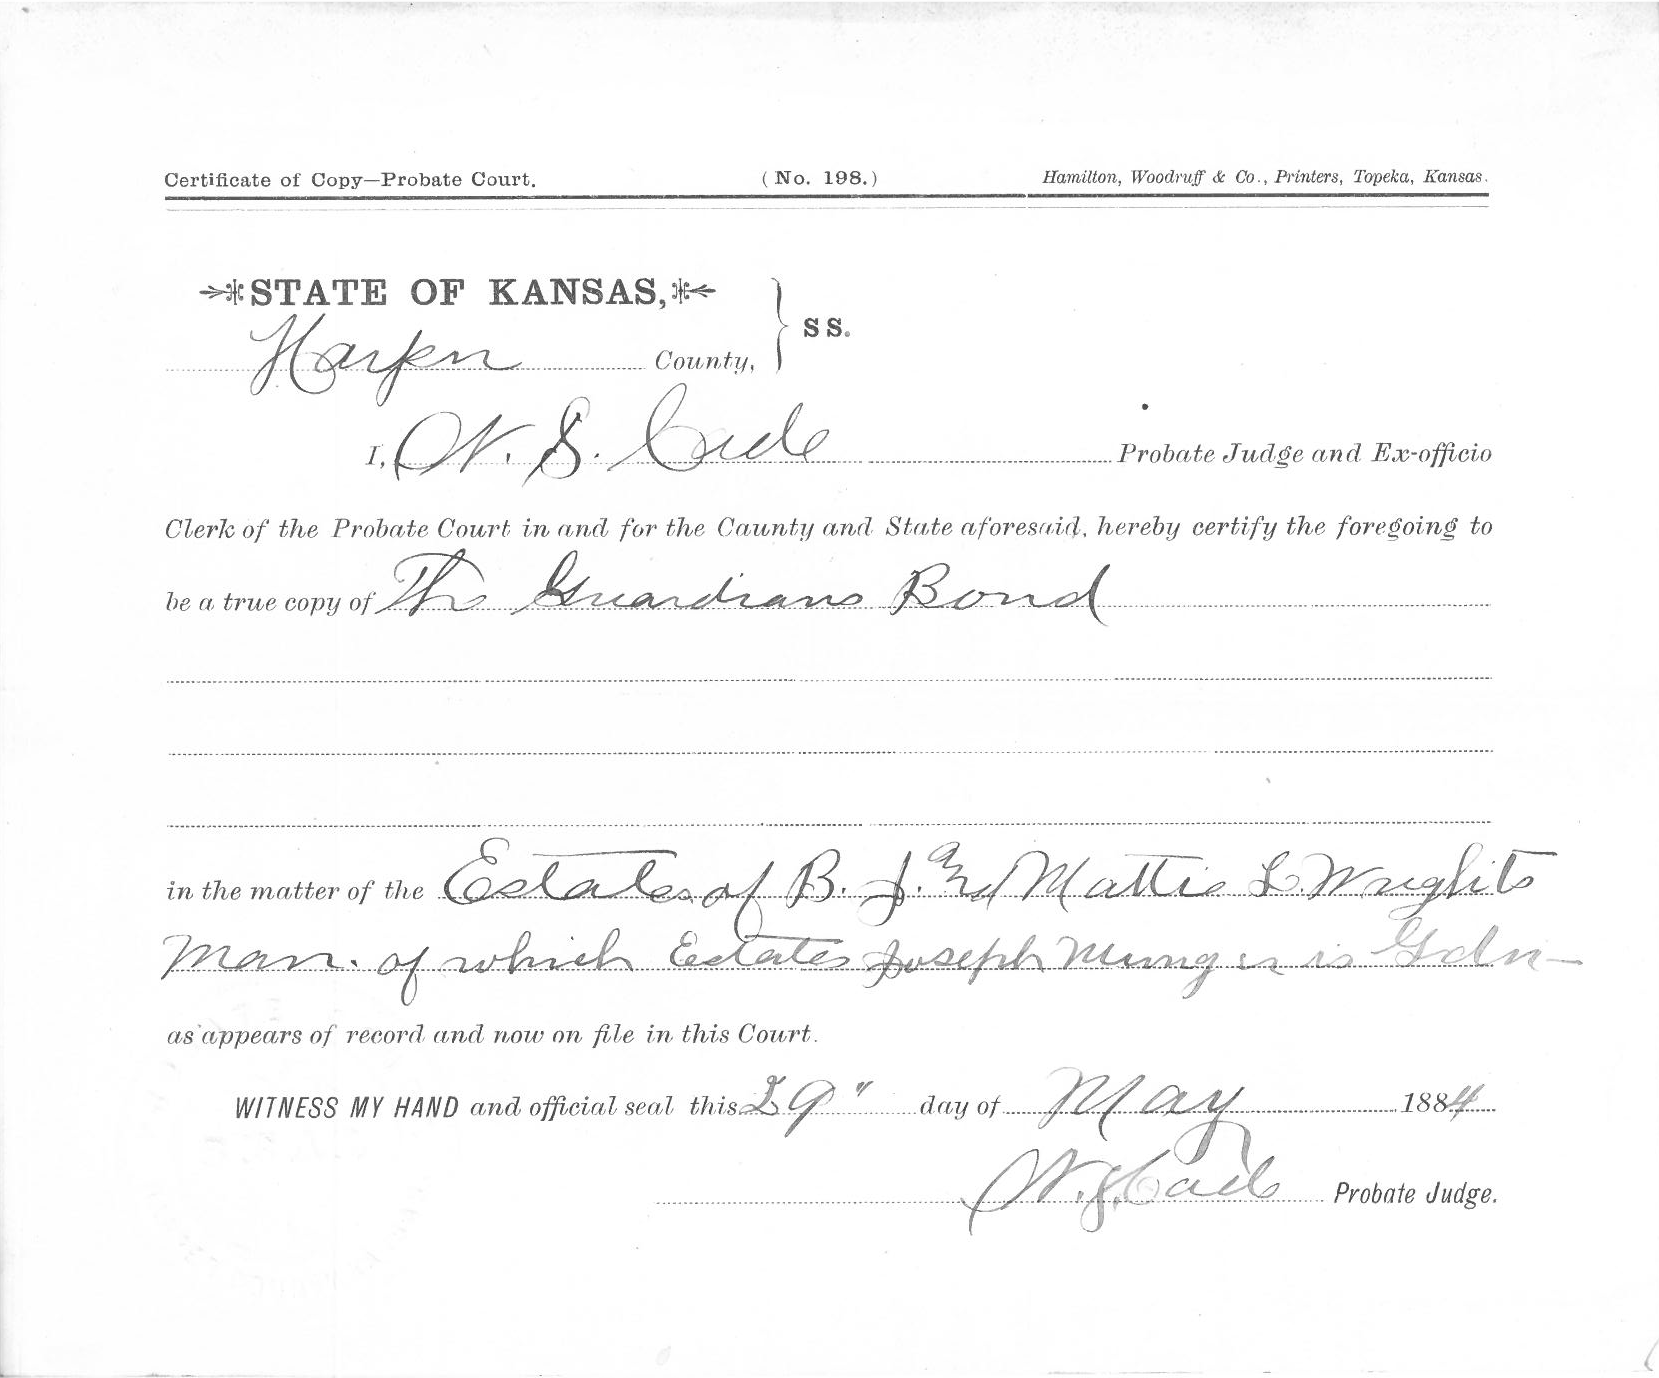 Certificate of Copy—Probate Court. (No. 198.) Hamilton, Woodruff & Co., Printers, Topeka, Kansas.
STATE OF KANSAS,
SS.
Harper County,
I, W. S. Cade Probate Judge and Ex-officio
Clerk of the Probate Court in and for the Caunty and State aforesaid, hereby certify the foregoing to
be a true copy of The Guardians Bond
in the matter of the Estates of B. J. and Mattie L. Wrights
man. of which Estates Joseph Munger is Gdn—
as appears of record and now on file in this Court.
WITNESS MY HAND and official seal this 29" day of May 1884
W. S. Cade Probate Judge.